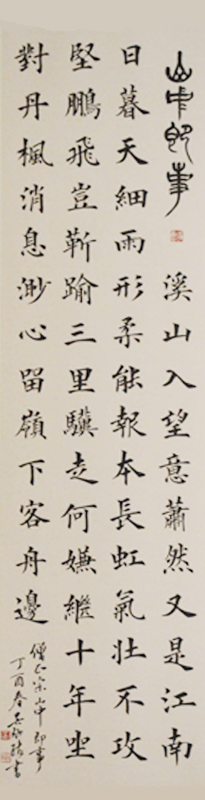 山中即事
溪山入望意蕭然又是江南
日暮天細雨形柔能報本長虹氣壯不攻
堅鵬飛豈靳踰三里驥走何嫌繼十年坐
對丹楓消息渺心留嶺下客舟邊
僧正宗山中即事
丁酉春 書